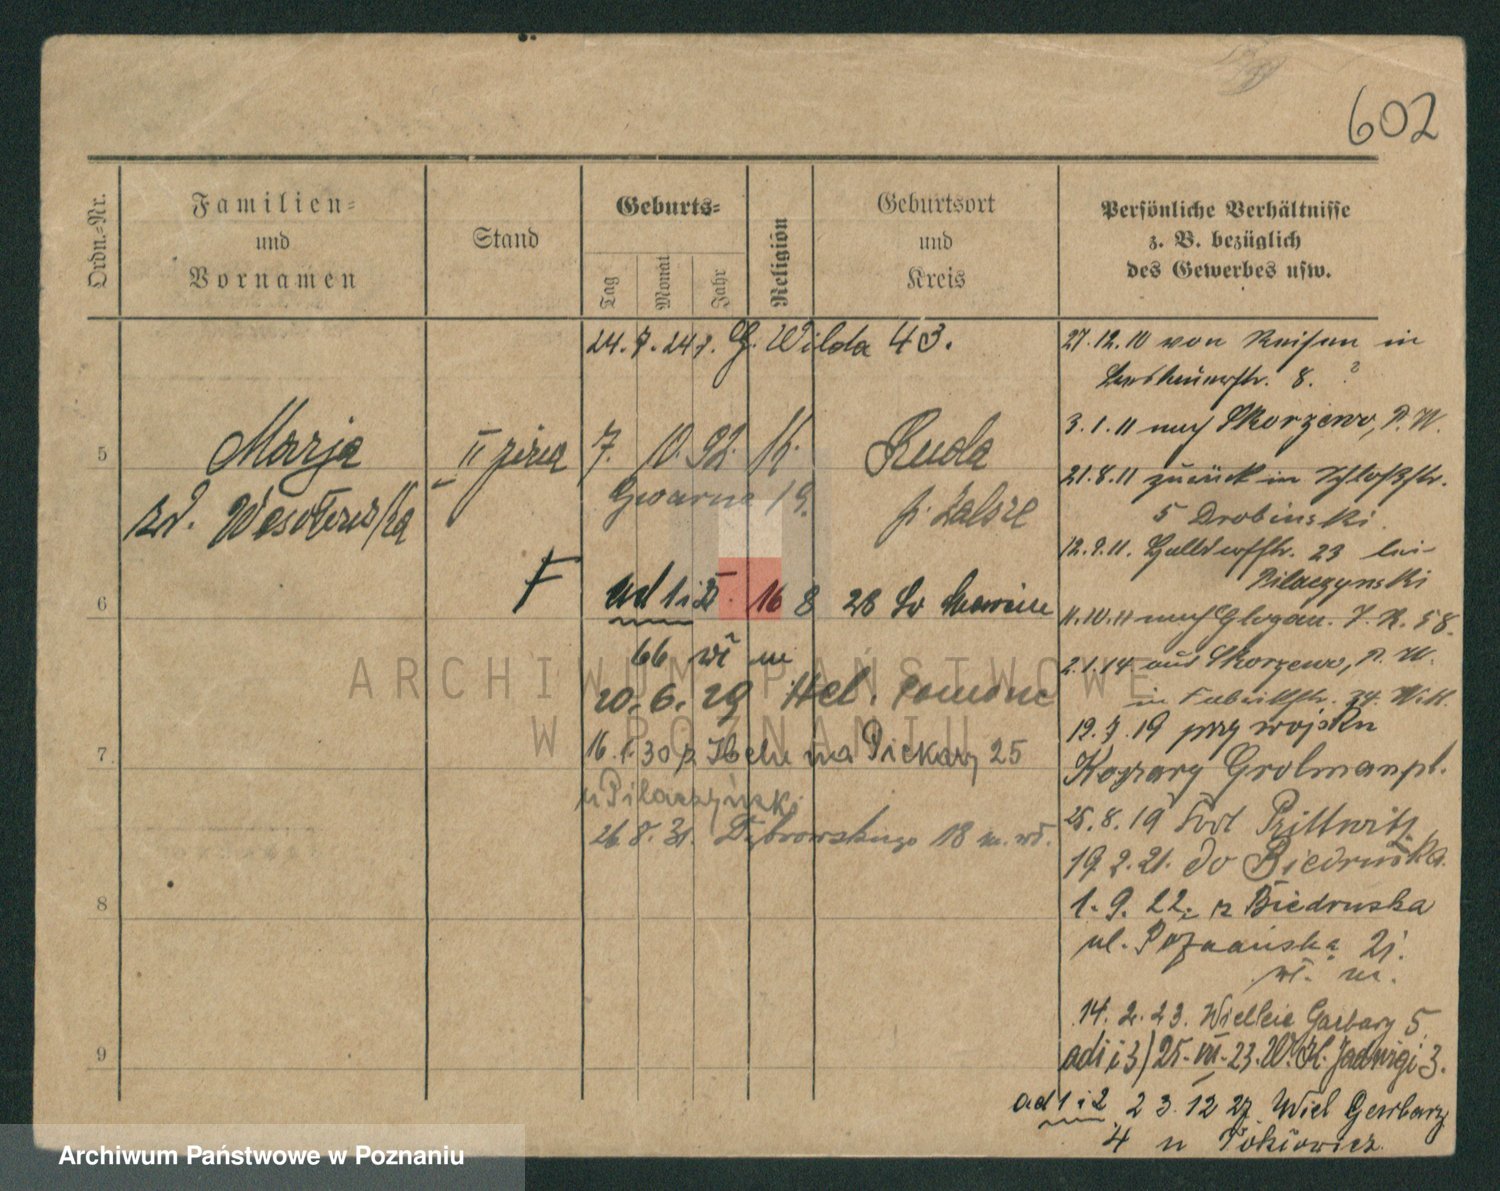 602
Ordn.-Nr.
Familien-
und
Vornamen
Stand
Geburts-
Tag
Monat
Jahr
Religion
Geburtsort
und
Kreis
Persönliche Verhältnisse
z. B. bezüglich
des Gewerbes usw.
24.7.24 G. Wilda 43.
5
Marja
II żona
7. 10. 92. K.
Ruda
Gwarna 19.
6
F
ad 1 i 2 16 8 28
66 wł m
20. 6. 29
7
16. 1. 30 na Piekary 25
u Pilaczyński
26. 8. 31. Dąbrowskiego 18 m. wł.
8
9
27.12.10 von Reisen in
8.
3.1.11 nach Skorzewo, P. W.
21.8.11 zurück in Schloßstr.
5 Drobinski.
12.9.11. 23 bei
Pilaczynski
11.10.11 nach Glogau. I. R. 58.
2.1.14 aus Skorzewo, P. W.
in Fabrikstr. 34.
19.7.19 przy wojsku
Koszary Grolmanpl.
25.8.19 Fort Prittwitz
19 2. 21. do Biedruska.
1. 9. 22. z Biedruska
ul. Poznańska 21.
wł. m.
14. 2. 23. Wielkie Garbary 5
ad 1 i 3) 25. VII. 23. W. Kl. Jadwigi 3.
ad 1 i 2 23. 12 27 Wiel Garbary
4 u
ARCHIWUM PAŃSTWOWE
W POZNANIU
Archiwum Państwowe w Poznaniu